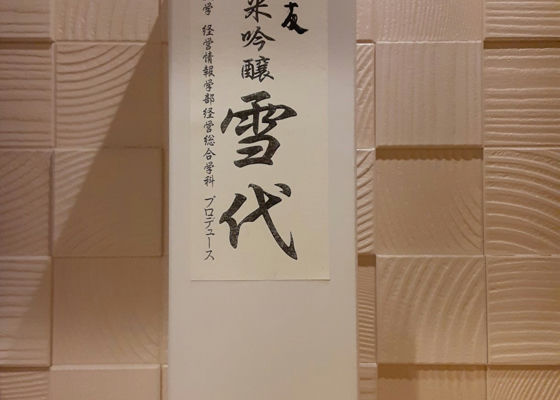 友
米吟醸
雪代
学 経営情報学部経営総合学科 プロデュース